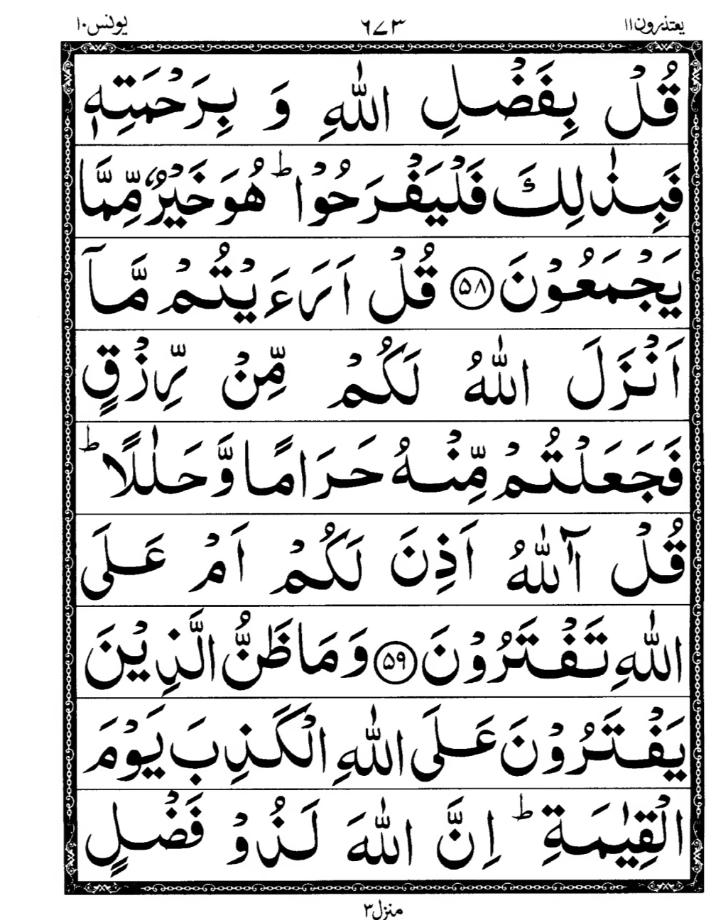 یعتذرون۱۱ ۶۷۳ یونس۱۰
قُلْ بِفَضْلِ اللّٰهِ وَ بِرَحْمَتِهٖ
فَبِذٰلِكَ فَلْیَفْرَحُوْا ؕ هُوَ خَیْرٌ مِّمَّا
یَجْمَعُوْنَ ﴿۵۸﴾ قُلْ اَرَءَیْتُمْ مَّاۤ
اَنْزَلَ اللّٰهُ لَكُمْ مِّنْ رِّزْقٍ
فَجَعَلْتُمْ مِّنْهُ حَرَامًا وَّ حَلٰلًا ؕ
قُلْ آٰللّٰهُ اَذِنَ لَكُمْ اَمْ عَلَی
اللّٰهِ تَفْتَرُوْنَ ﴿۵۹﴾ وَ مَا ظَنُّ الَّذِیْنَ
یَفْتَرُوْنَ عَلَی اللّٰهِ الْكَذِبَ یَوْمَ
الْقِیٰمَةِ ؕ اِنَّ اللّٰهَ لَذُوْ فَضْلٍ
منزل۳